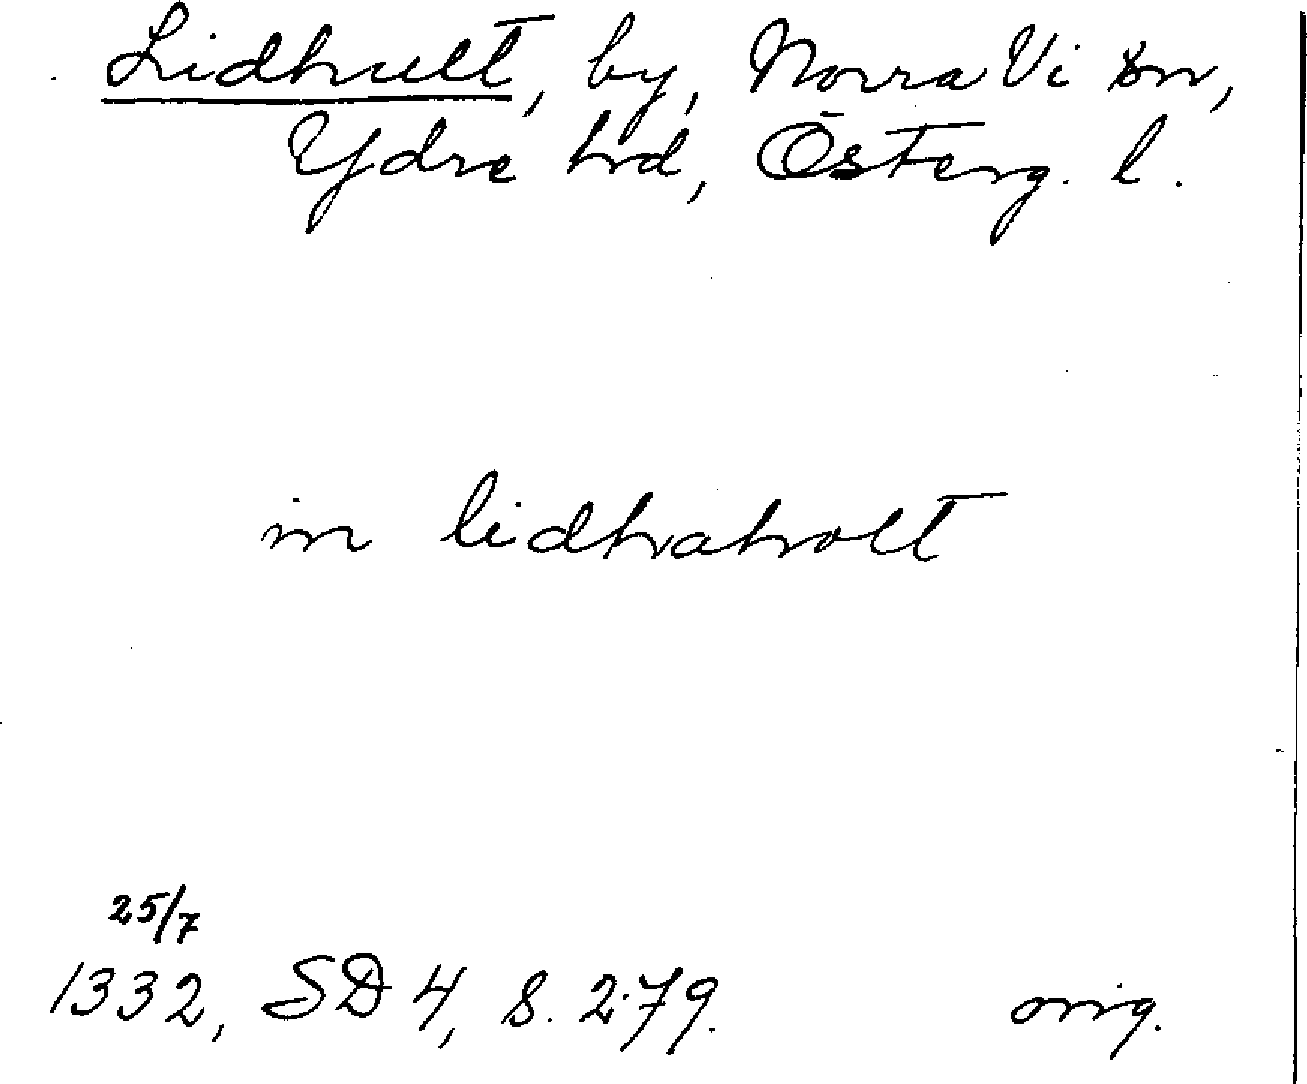 Lidhult, by, Norra Vi sn,
Ydre hd, Österg. l.
in lidhaholt
25/7
1332, SD 4, s. 279. orig.